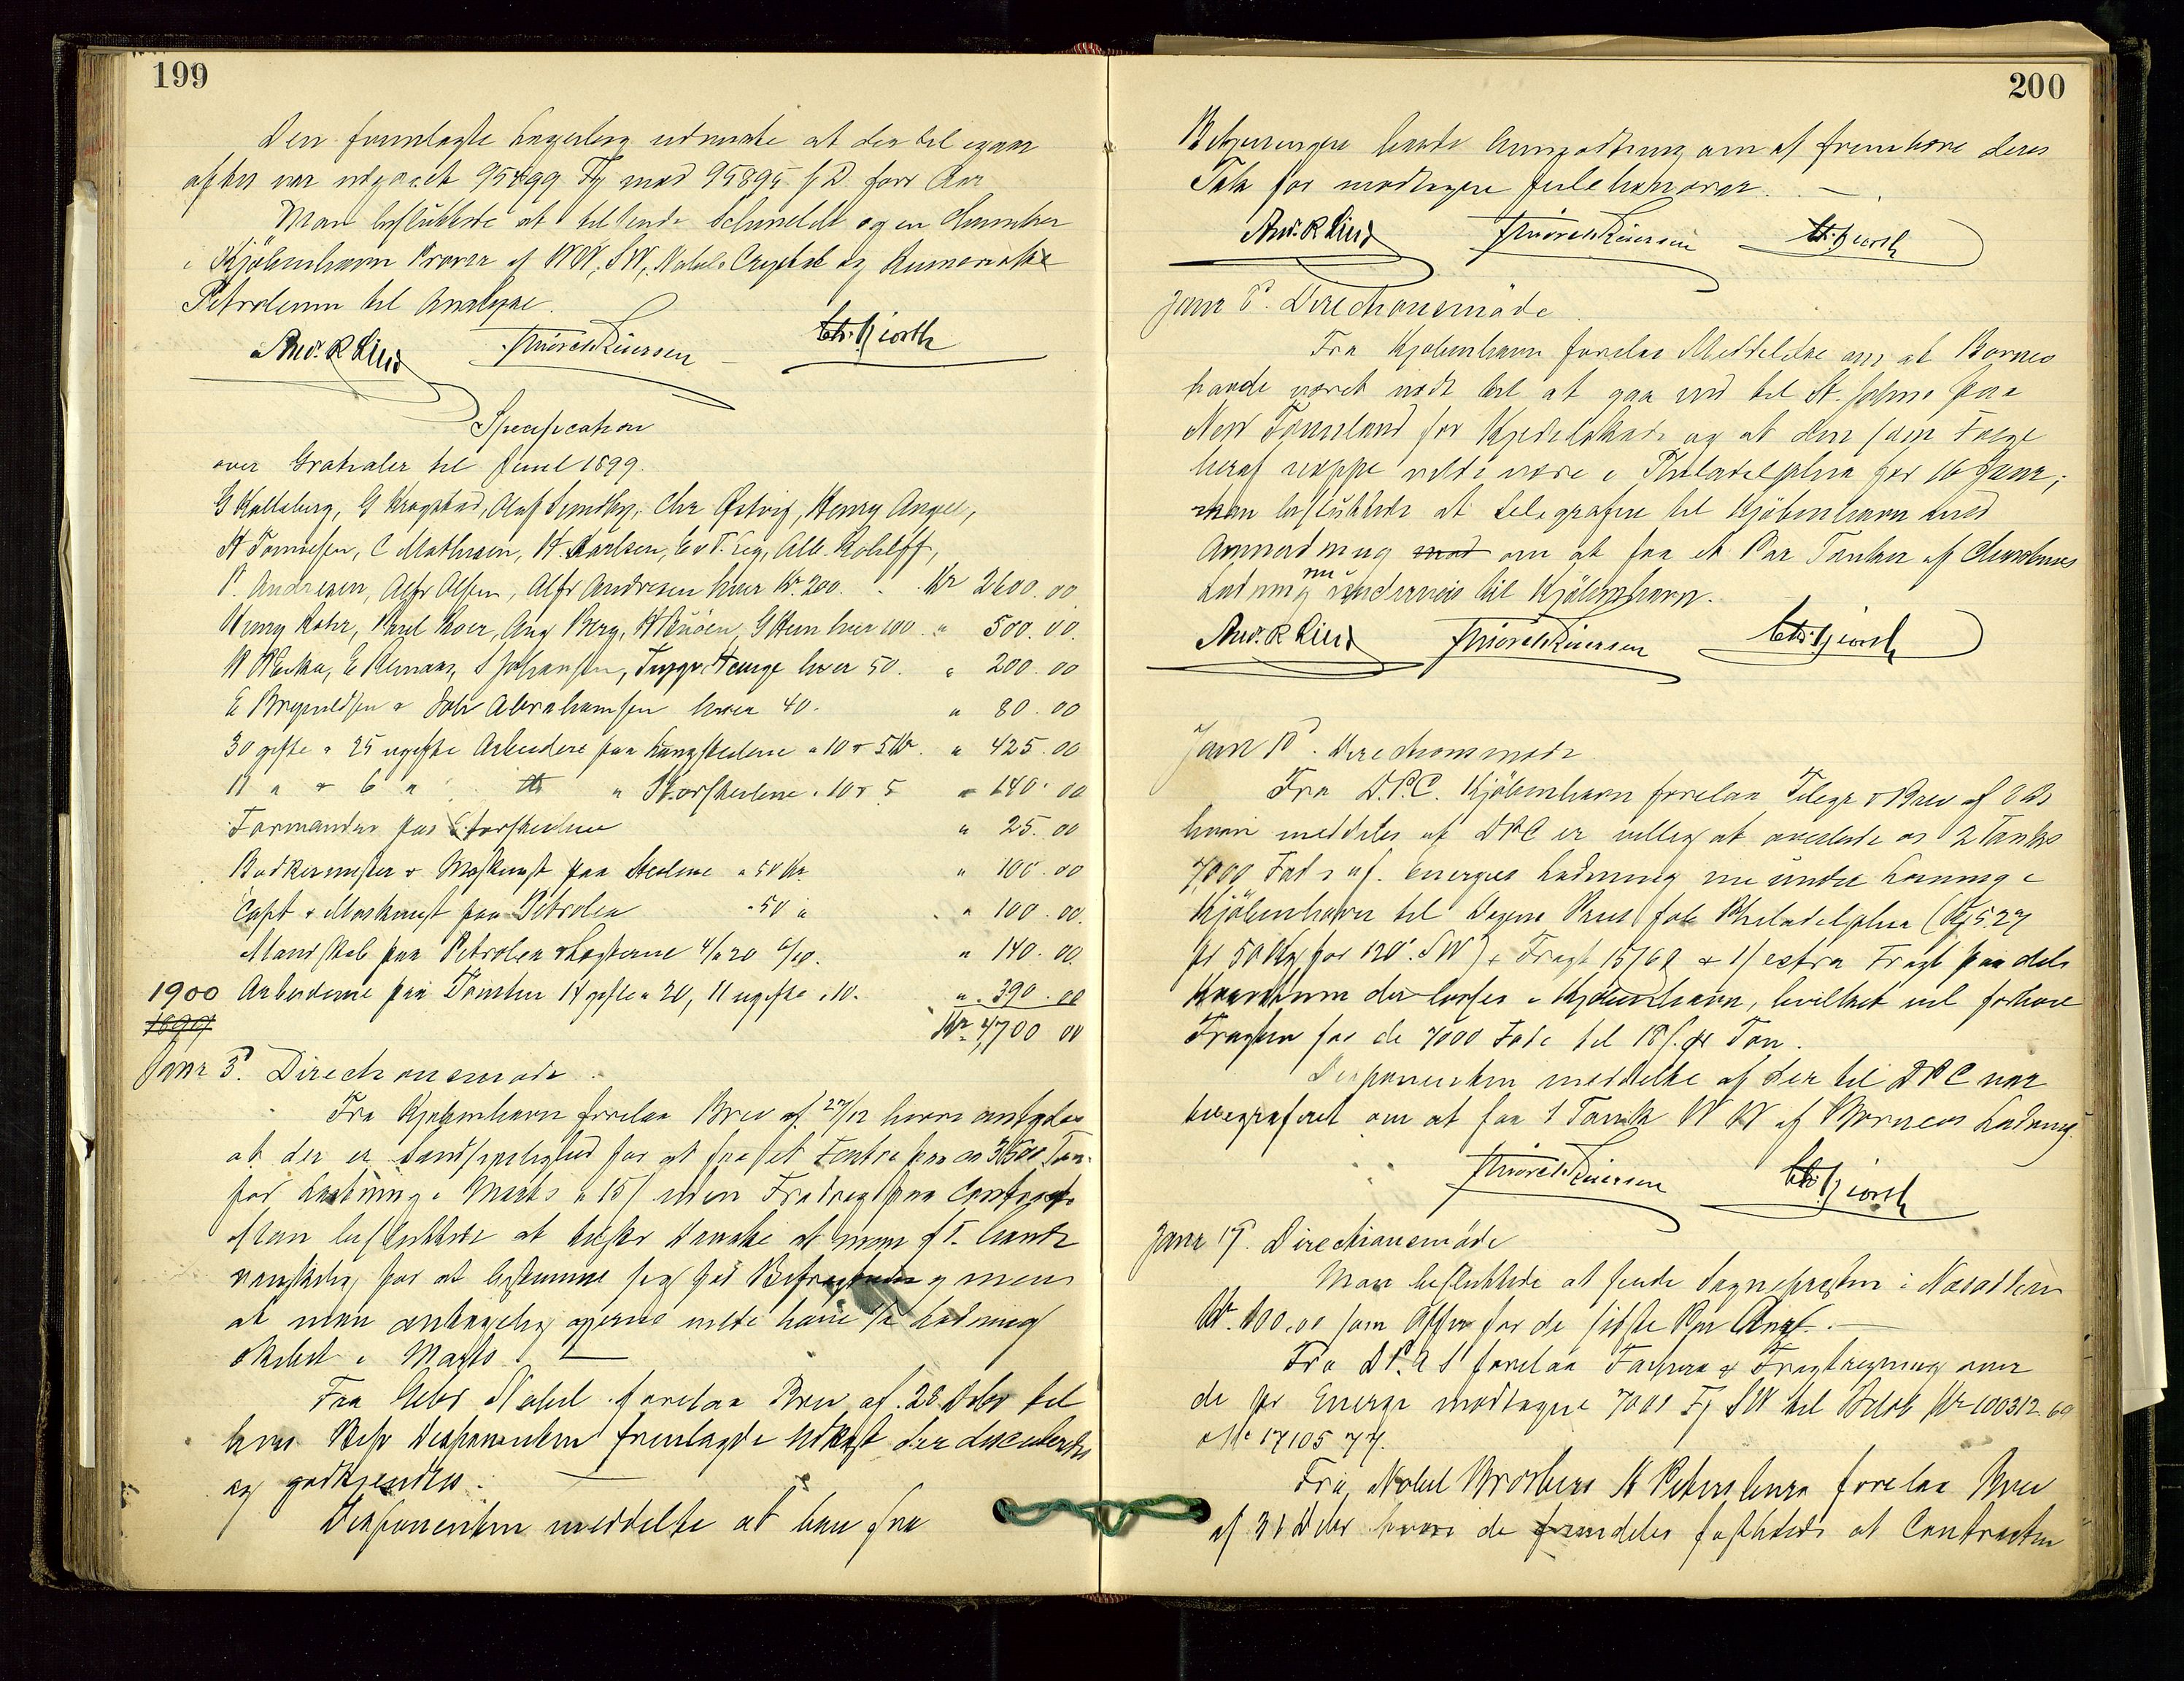 199
Den fremlagte Lageropg udviste at der til igaar
aften var udgaaet 95499 Fg mod 95895 f D forr Aar
Man besluttede at tilsende Schmelck og en Chemiker
i Kjöbenhavn Prover af WW, SW, Nobels Crystal og Rumænske
Petroleum til Analyse.
Andr. R Lind Thorvald Iversen Chr. Hjorth
Specification
over Gratialer til Juul 1899.
G Kallsberg, G Krogstad, Olaf Sundby, Chr Østvig, Henry Angell,
H Tonnesen, C Mathisen, H. Karlsen, E v T. Alb. Rohlff,
P. Andresen, Alfr Olsen, Alfr Andresen hver Kr. 200. Kr 2600.00
Henry Rohr, Paul Moer, Aug Berg, G Hem hver 100 " 500.00.
E S Johansen, hver 50. " 200.00
E Brynildsen & Joh Abrahamsen hver 40. " 80.00
30 gifte & 25 ugifte Arbeidere paa Langsteilene a 10 & 5 Kr. " 425.00
11 " & 6 " " Storsteilene a 10 & 5 " 140.00
Formanden paa Storsteilene " 25.00
Bødkermester & Maskinist paa Steilene a 50 Kr. " 100.00
Capt & Maskinist paa Petrolea a 50 " " 100.00.
Mandskab paa Petrolea & Lægterne 4/a 20 6/a 10. " 140.00.
1900 Arbeiderne paa Tomten 14 gifte a 20, 11 ugifte a 10. " 390.00
1899 Kr 4,700 00
Janr 3. Directionsmøde.
Fra Kjøbenhavn forelaa Brev af 27/12 hvori antydes
at der er Sandsynlighed for at faa et Centre paa ca 3500 Ton
for Ladning i Marts a 15/ uden Fradrag paa Contracts
Man besluttede at tilskr Danske at man f T. havde
vanskelig for at bestemme sig for Befragtning men
at man antagelig gjerne vilde have 1/2 Ladning
skibet i Marts. —
Fra Gebr Nobel forelaa Brev af 28 Debr til
hvis Besv Disponenten fremlagde Udkast der discuteredes
og godkjendtes. —
Disponenten meddelte at han fra
200
Betjeningen havde Anmodning om at fremføre deres
Tak for modtagne Julehonorar. —
Andr. R Lind Thorvald Iversen Chr. Hjorth
Janr 8. Directionsmøde
Fra Kjøbenhavn forelaa Meddelelse om at Borneo
havde været nødt til at gaa ind til St. Johns paa
New Foundland for Kjedelskade og at den som Følge
heraf neppe vilde være i Philadelphia før 16 Janr;
man besluttede at telegrafere til Kjöbenhavn med
Anmodning mod om at faa et Par Tanker af
Ladning nu underveis til Kjöbenhavn.
Andr. R Lind Thorvald Iversen Chr. Hjorth
Janr 10. Directionsmøde
Fra D.P.C. Kjöbenhavn forelaa Telegr & Brev af
hvori meddeles at DPC er villig at overlade os 2 Tanks
7000 Fade af Energies Ladning nu under Losning i
Kjöbenhavn til Dagens Pris fob Philadelphia (Kr 5.27
pr 50 Kg for 120° SW) & Fragt 15/6 & 1/ extra Fragt paa dels
Kvantum der losses i Kjøbenhavn, hvilket vil forhøie
Fragten for de 7000 Fade til 18/ pr Ton.
Disponenten meddelte at der til DPC var
telegraferet om at faa 1 Tank WW af Borneos Ladning.
Thorvald Iversen Chr. Hjorth
Janr 17. Directionsmøde
Man besluttede at sende Sognepresten i Nesodden
Kr. 100.00 som Offer for de sidste Par Aar. —
Fra D P A S forelaa Factura & Fragtregning over
de pr Energi modtagne 7001 Fg SW til Beløb Kr 100312.60
& Mc 17105 77.
Fra Nobel Brothers St Petersburg forelaa Brev
af 31 Debr hvori de fremdeles fastholdt at Contracten